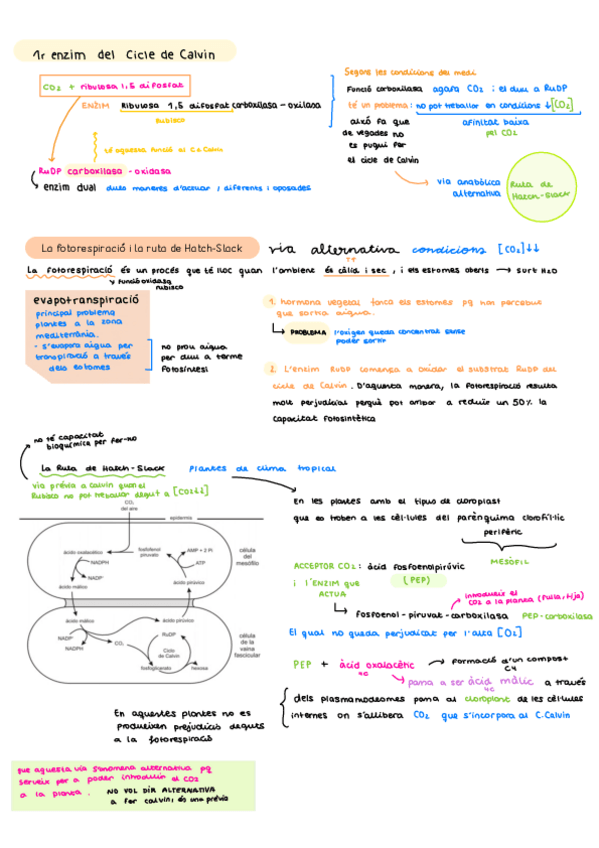 1r enzim del Cicle de Calvin
CO2 + ribulosa 1,5 difosfat
ENZIM Ribulosa 1,5 difosfat carboxilasa - oxilasa
rubisco
té aquesta funció al C. Calvin
RuDP carboxilasa - oxidasa
enzim dual dues maneres d'actuar, diferents i oposades
Segons les condicions del medi
Funció carboxilasa agafa CO2 i el duu a RuDP
té un problema: no pot treballar en condicions ↓[CO2]
això fa que
de vegades no
es pugui fer
el cicle de Calvin
afinitat baixa
pel CO2
via anabòlica
alternativa
Ruta de
Hatch-Slack
La fotorespiració i la ruta de Hatch-Slack
via alternativa condicions [CO2]↓↓
La fotorespiració és un procés que té lloc quan l'ambient és càlid i sec, i els estomes oberts → surt H2O
funció oxidasa
rubisco
evapotranspiració
principal problema
plantes a la zona
mediterrània.
- s'evapora aigua per
transpiració a través
dels estomes
no prou aigua
per duu a terme
fotosíntesi
1. hormona vegetal tanca els estomes pq non percebue
que sortia aigua.
PROBLEMA l'oxigen queda concentrat sense
poder sortir
2. L'enzim RuDP comença a oxidar el substrat RuDP del
cicle de Calvin. D'aquesta manera, la fotorespiració resulta
molt perjudicial perquè pot arribar a reduir un 50% la
capacitat fotosintètica
no té capacitat
bioquímica per fer-ho
La Ruta de Hatch-Slack plantes de clima tropical
via prèvia a calvin quan el
Rubisco no pot treballar degut a [CO2↓↓]
CO2
del aire
epidermis
ácido oxalacético
fosfofenol
piruvato
AMP + 2 Pi
NADPH
ATP
NADP+
ácido málico
ácido pirúvico
célula
del
mesófilo
ácido málico
ácido pirúvico
NADP+
NADPH
CO2
RuDP
Ciclo
de Calvin
fosfoglicerato
hexosa
célula
de la
vaina
fascicular
En les plantes amb el tipus de cloroplast
que es troben a les cèl·lules del parènquima clorofíl·lic
perifèric
MESÒFIL
ACCEPTOR CO2: àcid fosfoenolpirúvic
(PEP)
i l'ENZIM que
ACTUA
introdueix el
CO2 a la planta (fulla, tija)
fosfoenol-piruvat-carboxilasa PEP-carboxilasa
El qual no queda perjudicat per l'alta [O2]
PEP + àcid oxalacètic → formació d'un compost
4C
C4
passa a ser àcid màlic a través
4C
dels plasmanodesmes passa al cloroplast de les cèl·lules
internes on s'allibera CO2 que s'incorpora al C.Calvin
En aquestes plantes no es
produeixen prejudicis deguts
a la fotorespiració
que aquesta via s'anomena alternativa pq
serveix per a poder introduir el CO2
a la planta. NO VOL DIR ALTERNATIVA
a fer calvin, és una prèvia